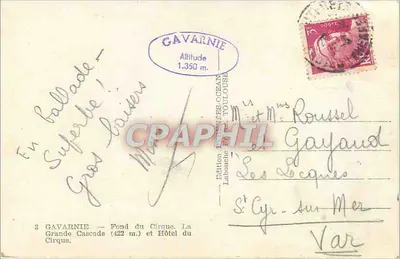 GAVARNIE
Altitude
1.350 m.
En ballade -
Superbe !
Gros baisers
Mr et Mme Roussel
Gayaud
Les Lecques
St Cyr-sur-Mer
Var
3 GAVARNIE. — Fond du Cirque. La
Grande Cascade (422 m.) et Hôtel du
Cirque.
CPAPHIL